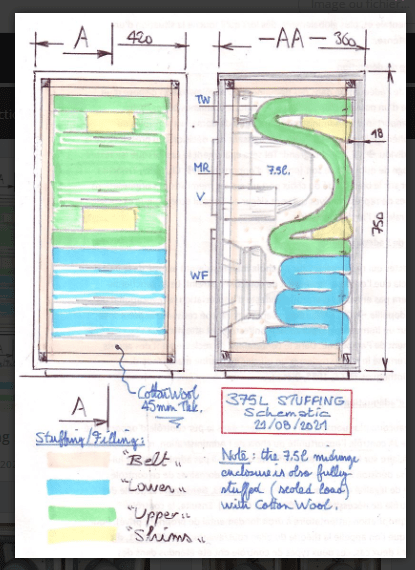 Image ou fichier
A
420
-AA-
360
TW
MR
7.5l.
V
18
750
WF
Cotton Wool
45mm Thk.
A
375L STUFFING
Schematic
29/08/2021
Stuffing/Filling:
"Belt"
"Lower"
"Upper"
"Shims"
Note: the 7.5l midrange
enclosure is also fully
stuffed (sealed load)
with Cotton Wool.